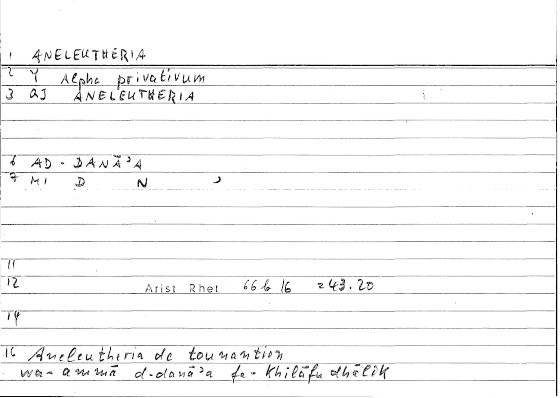 1 ANELEUTHERIA
2 Y Alpha privativum
3 QJ ANELEUTHERIA
6 AD-DANĀʾA
7 MI D N ʾ
11
12 Arist Rhet 66b16 =43.20
14
16 Aneleutheria de tounantion
wa-ammā d-danāʾa fa-khilāfu dhālik